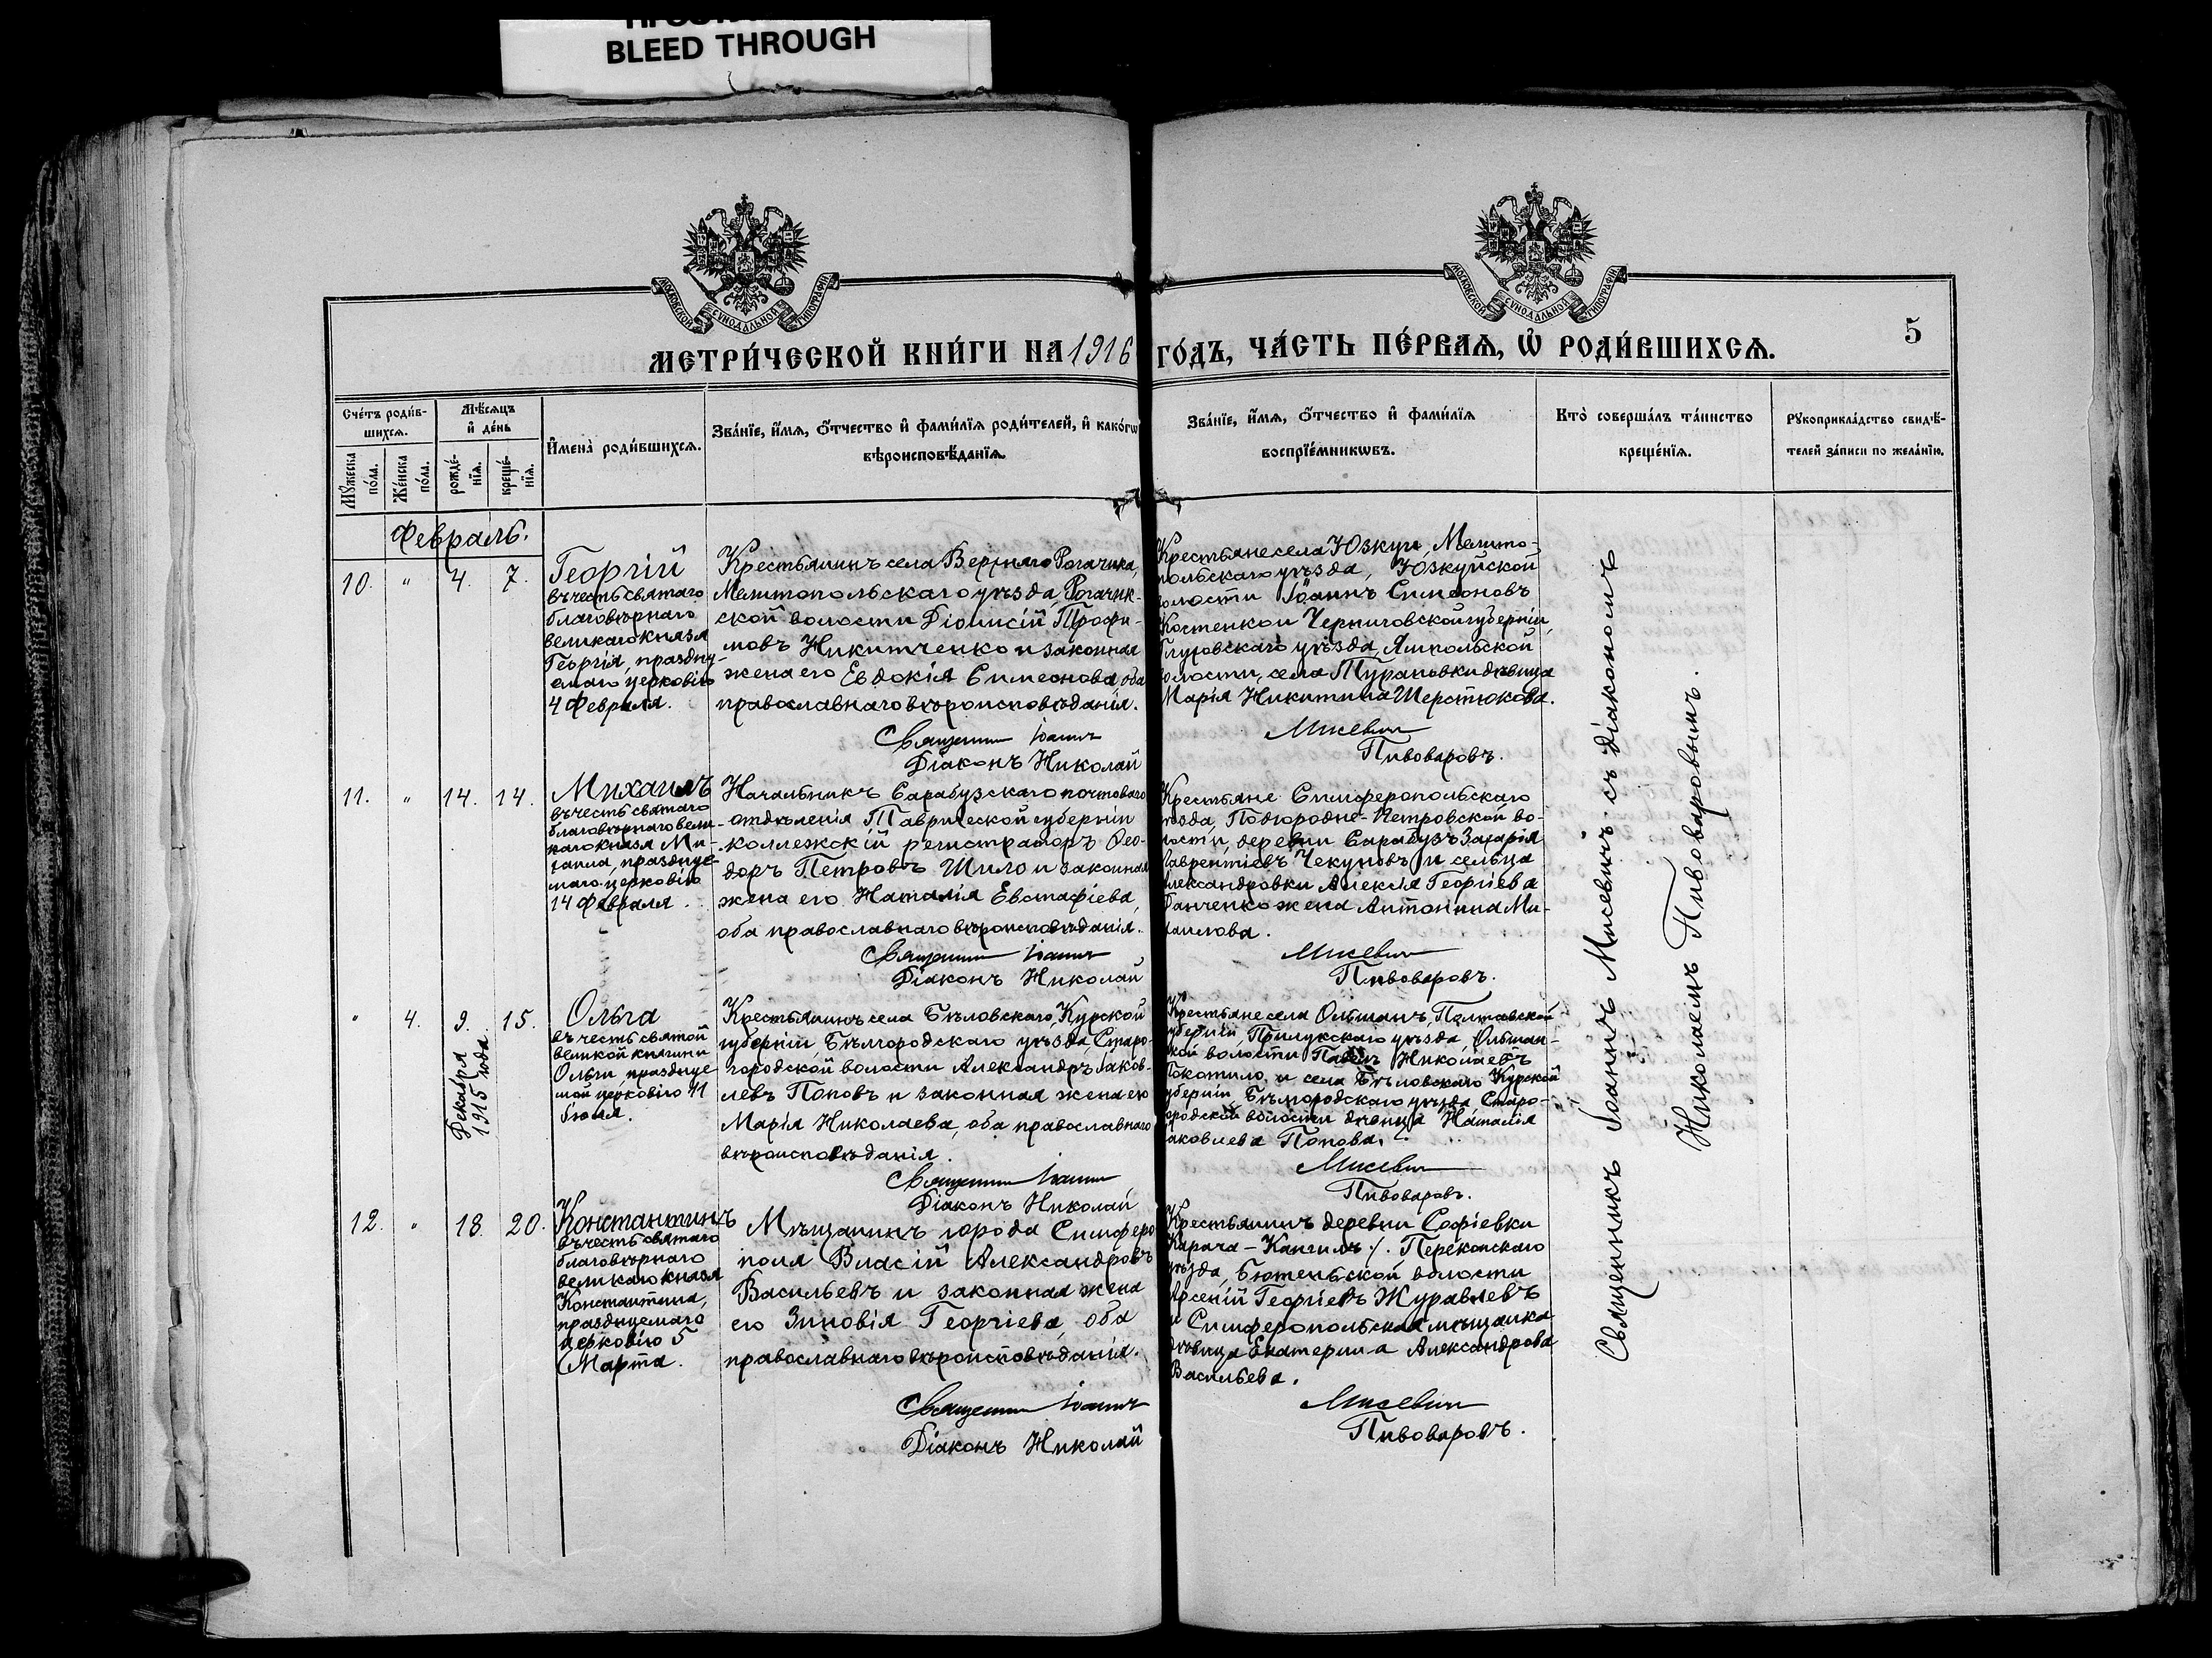 BLEED THROUGH
МОСКОВСКОЙ СѴНОДАЛЬНОЙ ТИПОГРАФІИ
МОСКОВСКОЙ СѴНОДАЛЬНОЙ ТИПОГРАФІИ
МЕТРИ́ЧЕСКОЙ КНИ́ГИ НА 1916 ГО́ДЪ, ЧА́СТЬ ПЕ́РВАѦ, Ѡ҆ РОДИ́ВШИХСѦ.
5
Сче́тъ роди́в-
шихсѧ.
Мѣ́сѧцъ
и҆ де́нь
Мꙋ́жеска по́ла.
Же́нска по́ла.
рожде́-
нїѧ.
креще́-
нїѧ.
И҆мена̀ роди́вшихсѧ.
Зва́нїе, и҆́мѧ, ѻ҆́тчество и҆ фами́лїѧ роди́телей, и҆ како́гѡ
вѣроисповѣ́данїѧ.
Зва́нїе, и҆́мѧ, ѻ҆́тчество и҆ фами́лїѧ
воспрїе́мникѡвъ.
Кто̀ соверша́лъ та́инство
креще́нїѧ.
Рꙋкоприкла́дство свидѣ́-
телей за́писи по жела́нїю.
Февраль.
10. " 4. 7.
Георгій
въ честь святаго
благовѣрнаго
великаго князя
Георгія, праздну-
емаго церковію
4 Февраля.
Крестьянинъ села Верхняго Рогачика,
Мелитопольскаго уѣзда, Рогачик-
ской волости Діонисій Трофи-
мовъ Никитченко и законная
жена его Евдокія Симеонова, оба
православнаго вѣроисповѣданія.
Священникъ Іоаннъ
Діаконъ Николай
Крестьяне села Юзкуи, Мелито-
польскаго уѣзда, Юзкуйской
волости Іоаннъ Симеоновъ
Костенко и Черниговской губерніи,
Глуховскаго уѣзда, Ямпольской
волости, села Турановки дѣвица
Марія Никитина Шерстюкова.
Мисевич
Пивоваровъ.
11. " 14. 14.
Михаилъ
въ честь святаго
благовѣрнаго вели-
каго князя Ми-
хаила, праздкуе-
маго церковію
14 Февраля.
Начальникъ Сарабузскаго почтоваго
отдѣленія Таврической губерніи
коллежскій регистраторъ Ѳео-
доръ Петровъ Шило и законная
жена его Наталія Евстафіева,
оба православнаго вѣроисповѣданія.
Священникъ Іоаннъ
Діаконъ Николай
Крестьяне Симферопольскаго
уѣзда, Подгородне-Петровской во-
лости, деревни Сарабузъ Захарія
Лаврентіевъ Чекуновъ и сельца
Александровки Алексія Георгіева
Ганченко жена Антонина Ми-
хаилова.
Мисевич
Пивоваровъ.
" 4. 9. 15.
Декабря
1915 года
Ольга
въ честь святой
великой княгини
Ольги, празднуе-
мой церковію 11
Іюля.
Крестьянинъ села Бѣловскаго, Курской
губерніи, Бѣлгородскаго уѣзда, Старо-
городской волости Александръ Іаков-
левъ Поповъ и законная жена его
Марія Николаева, оба православнаго
вѣроисповѣданія.
Священникъ Іоаннъ
Діаконъ Николай
Крестьяне села Ольшанъ, Полтавской
губерніи, Прилукскаго уѣзда, Ольшан-
ской волости Павелъ Николаевъ
Покотило и села Бѣловскаго Курской
губерніи, Бѣлгородскаго уѣзда Старо-
городской волости дѣвица Наталія
Іаковлева Попова.
Мисевич
Пивоваровъ.
12. " 18. 20.
Константинъ
въ честь святаго
благовѣрнаго
великаго князя
Константина,
празднуемаго
церковію 5
Марта.
Мѣщанинъ города Симферо
поля Власій Александровъ
Васильевъ и законная жена
его Зиновія Георгіева, оба
православнаго вѣроисповѣданія.
Священникъ Іоаннъ
Діаконъ Николай
Крестьянинъ деревни Софіевки
Карача-Кангилъ ∕. Перекопскаго
уѣзда, Бютеньской волости
Арсеній Георгіевъ Журавлевъ
и Симферопольская мѣщанка
дѣвица Екатерина Александрова
Васильева.
Мисевич
Пивоваровъ.
Священникъ Іоаннъ Мисевичъ съ діакономъ
Николаемъ Пивоваровымъ.